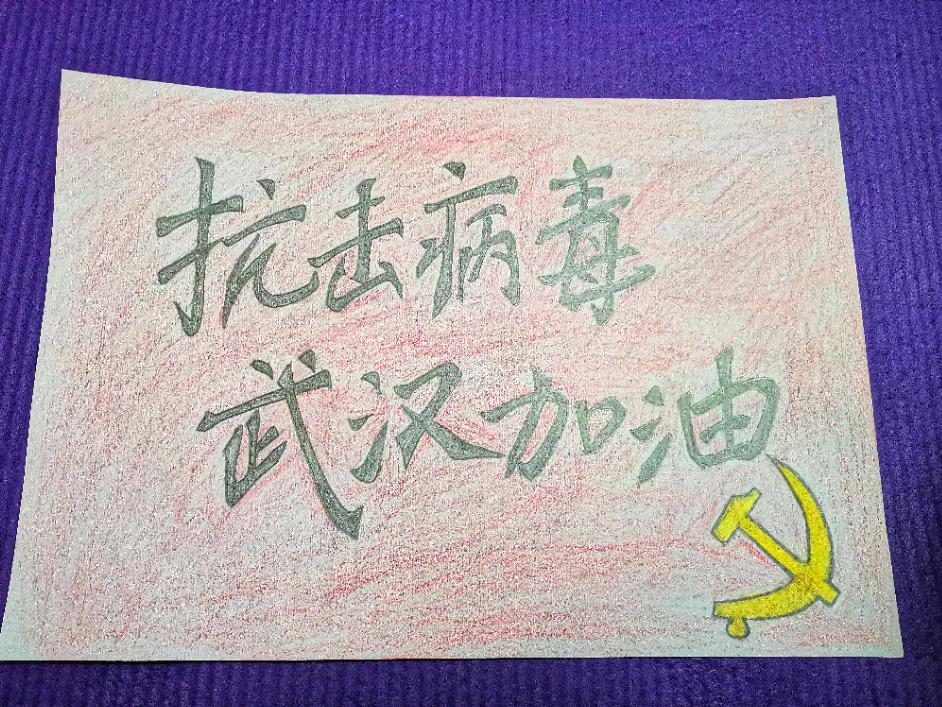 抗击病毒
武汉加油